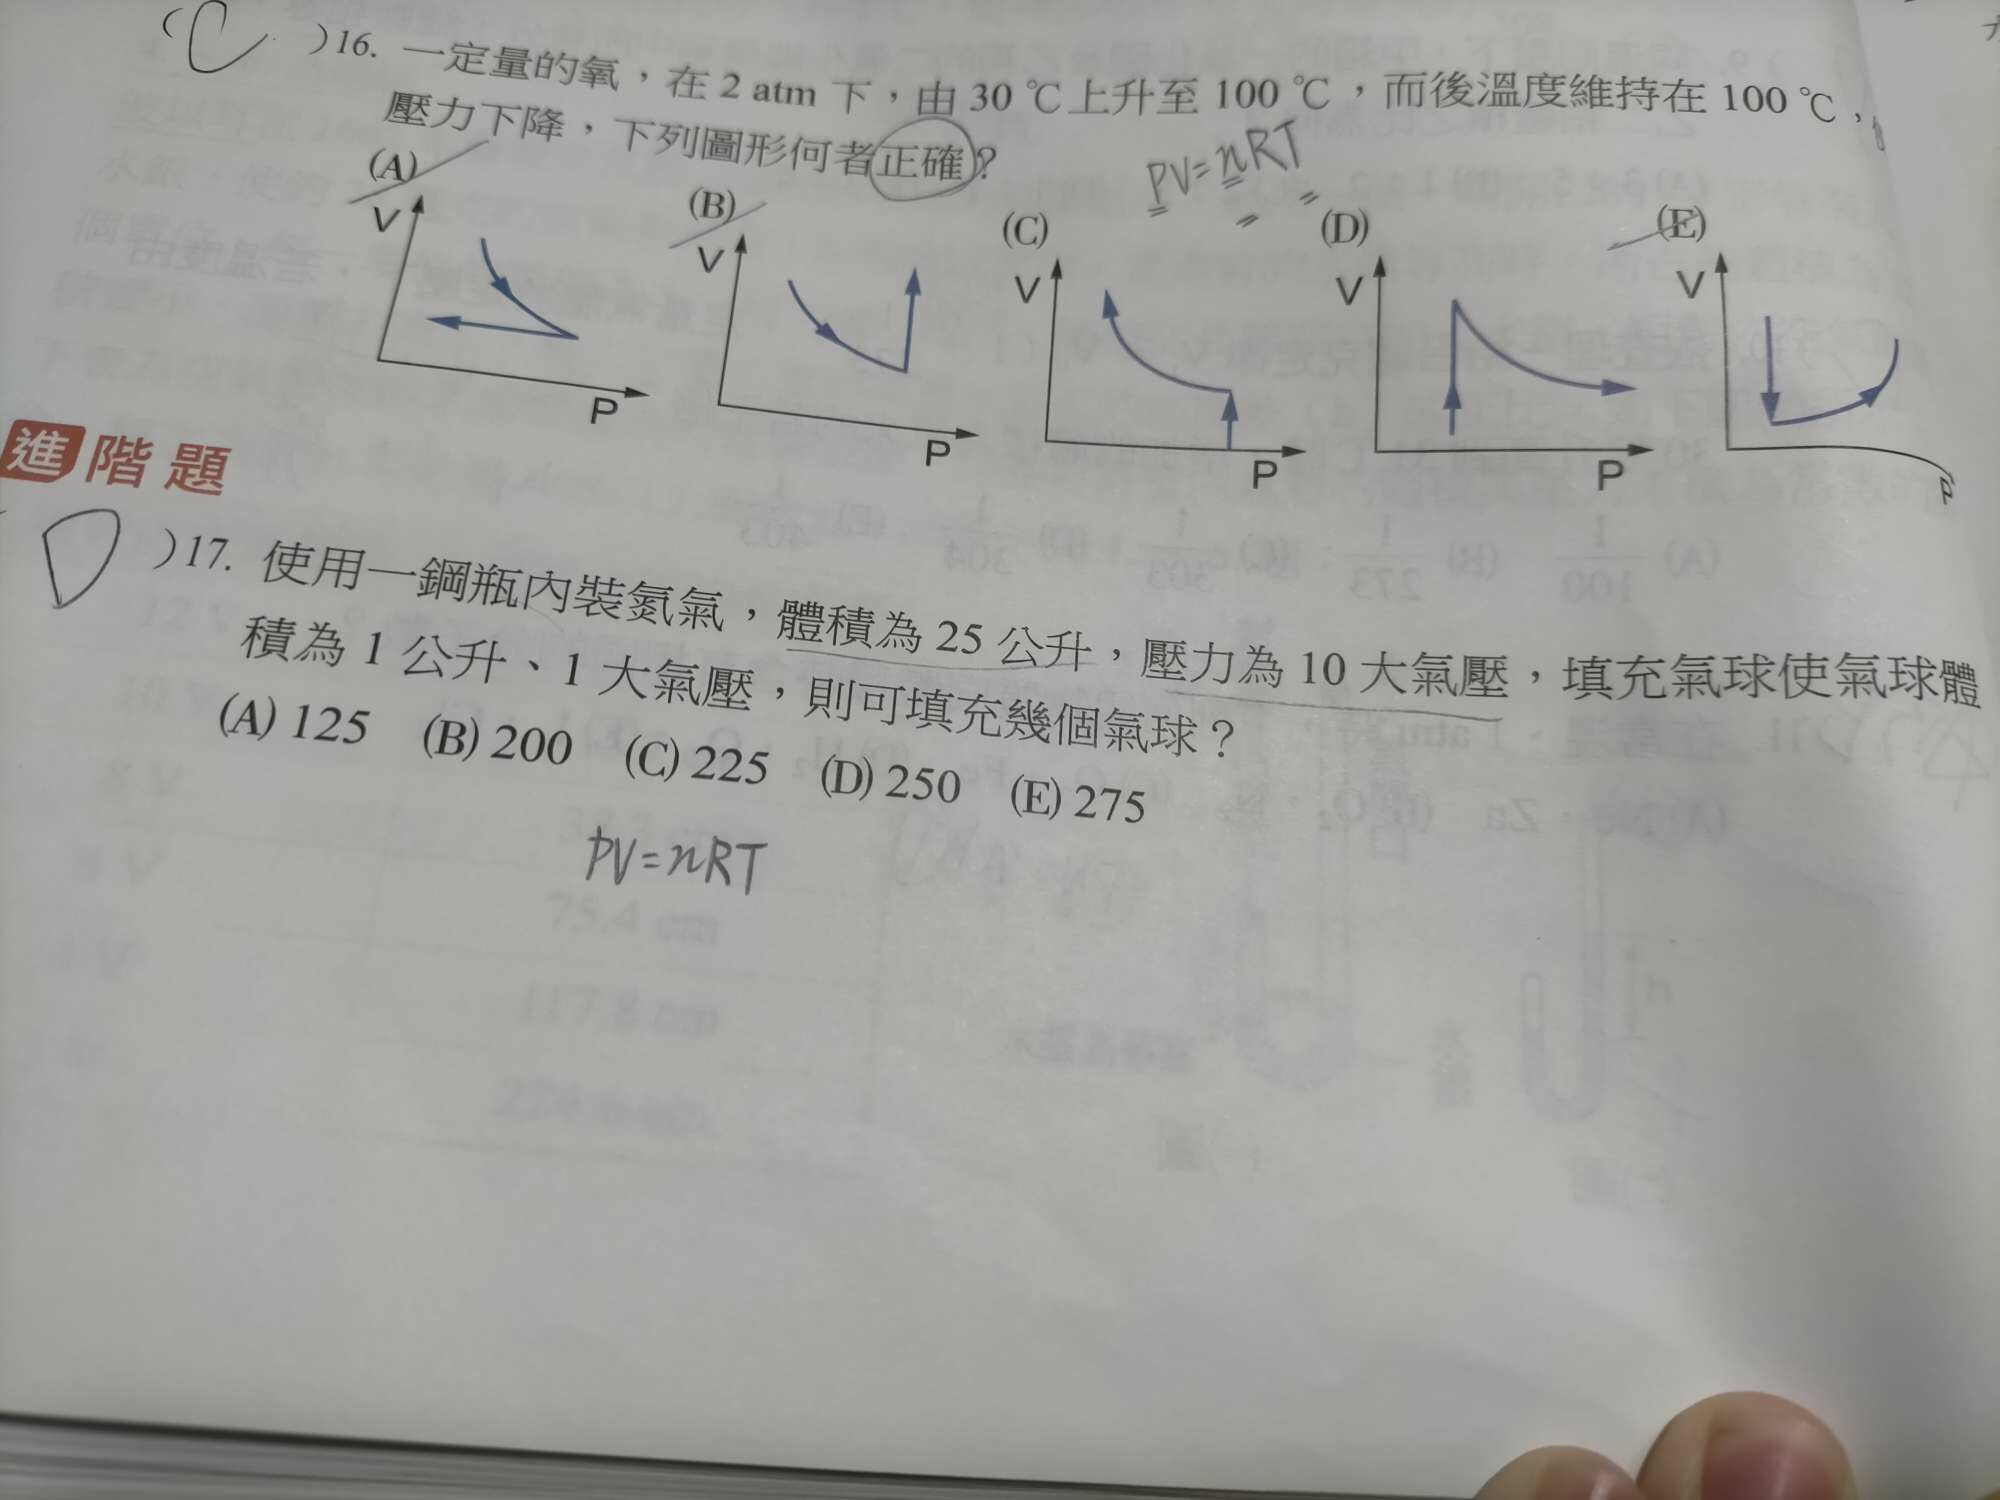 (C)16. 一定量的氧，在 2 atm 下，由 30 ℃上升至 100 ℃，而後溫度維持在 100 ℃，
壓力下降，下列圖形何者正確？
PV=nRT
(A) (B) (C) (D) (E)
V V V V V
P P P P P
進階題
(D)17. 使用一鋼瓶內裝氮氣，體積為 25 公升，壓力為 10 大氣壓，填充氣球使氣球體
積為 1 公升、1 大氣壓，則可填充幾個氣球？
(A) 125 (B) 200 (C) 225 (D) 250 (E) 275
PV=nRT